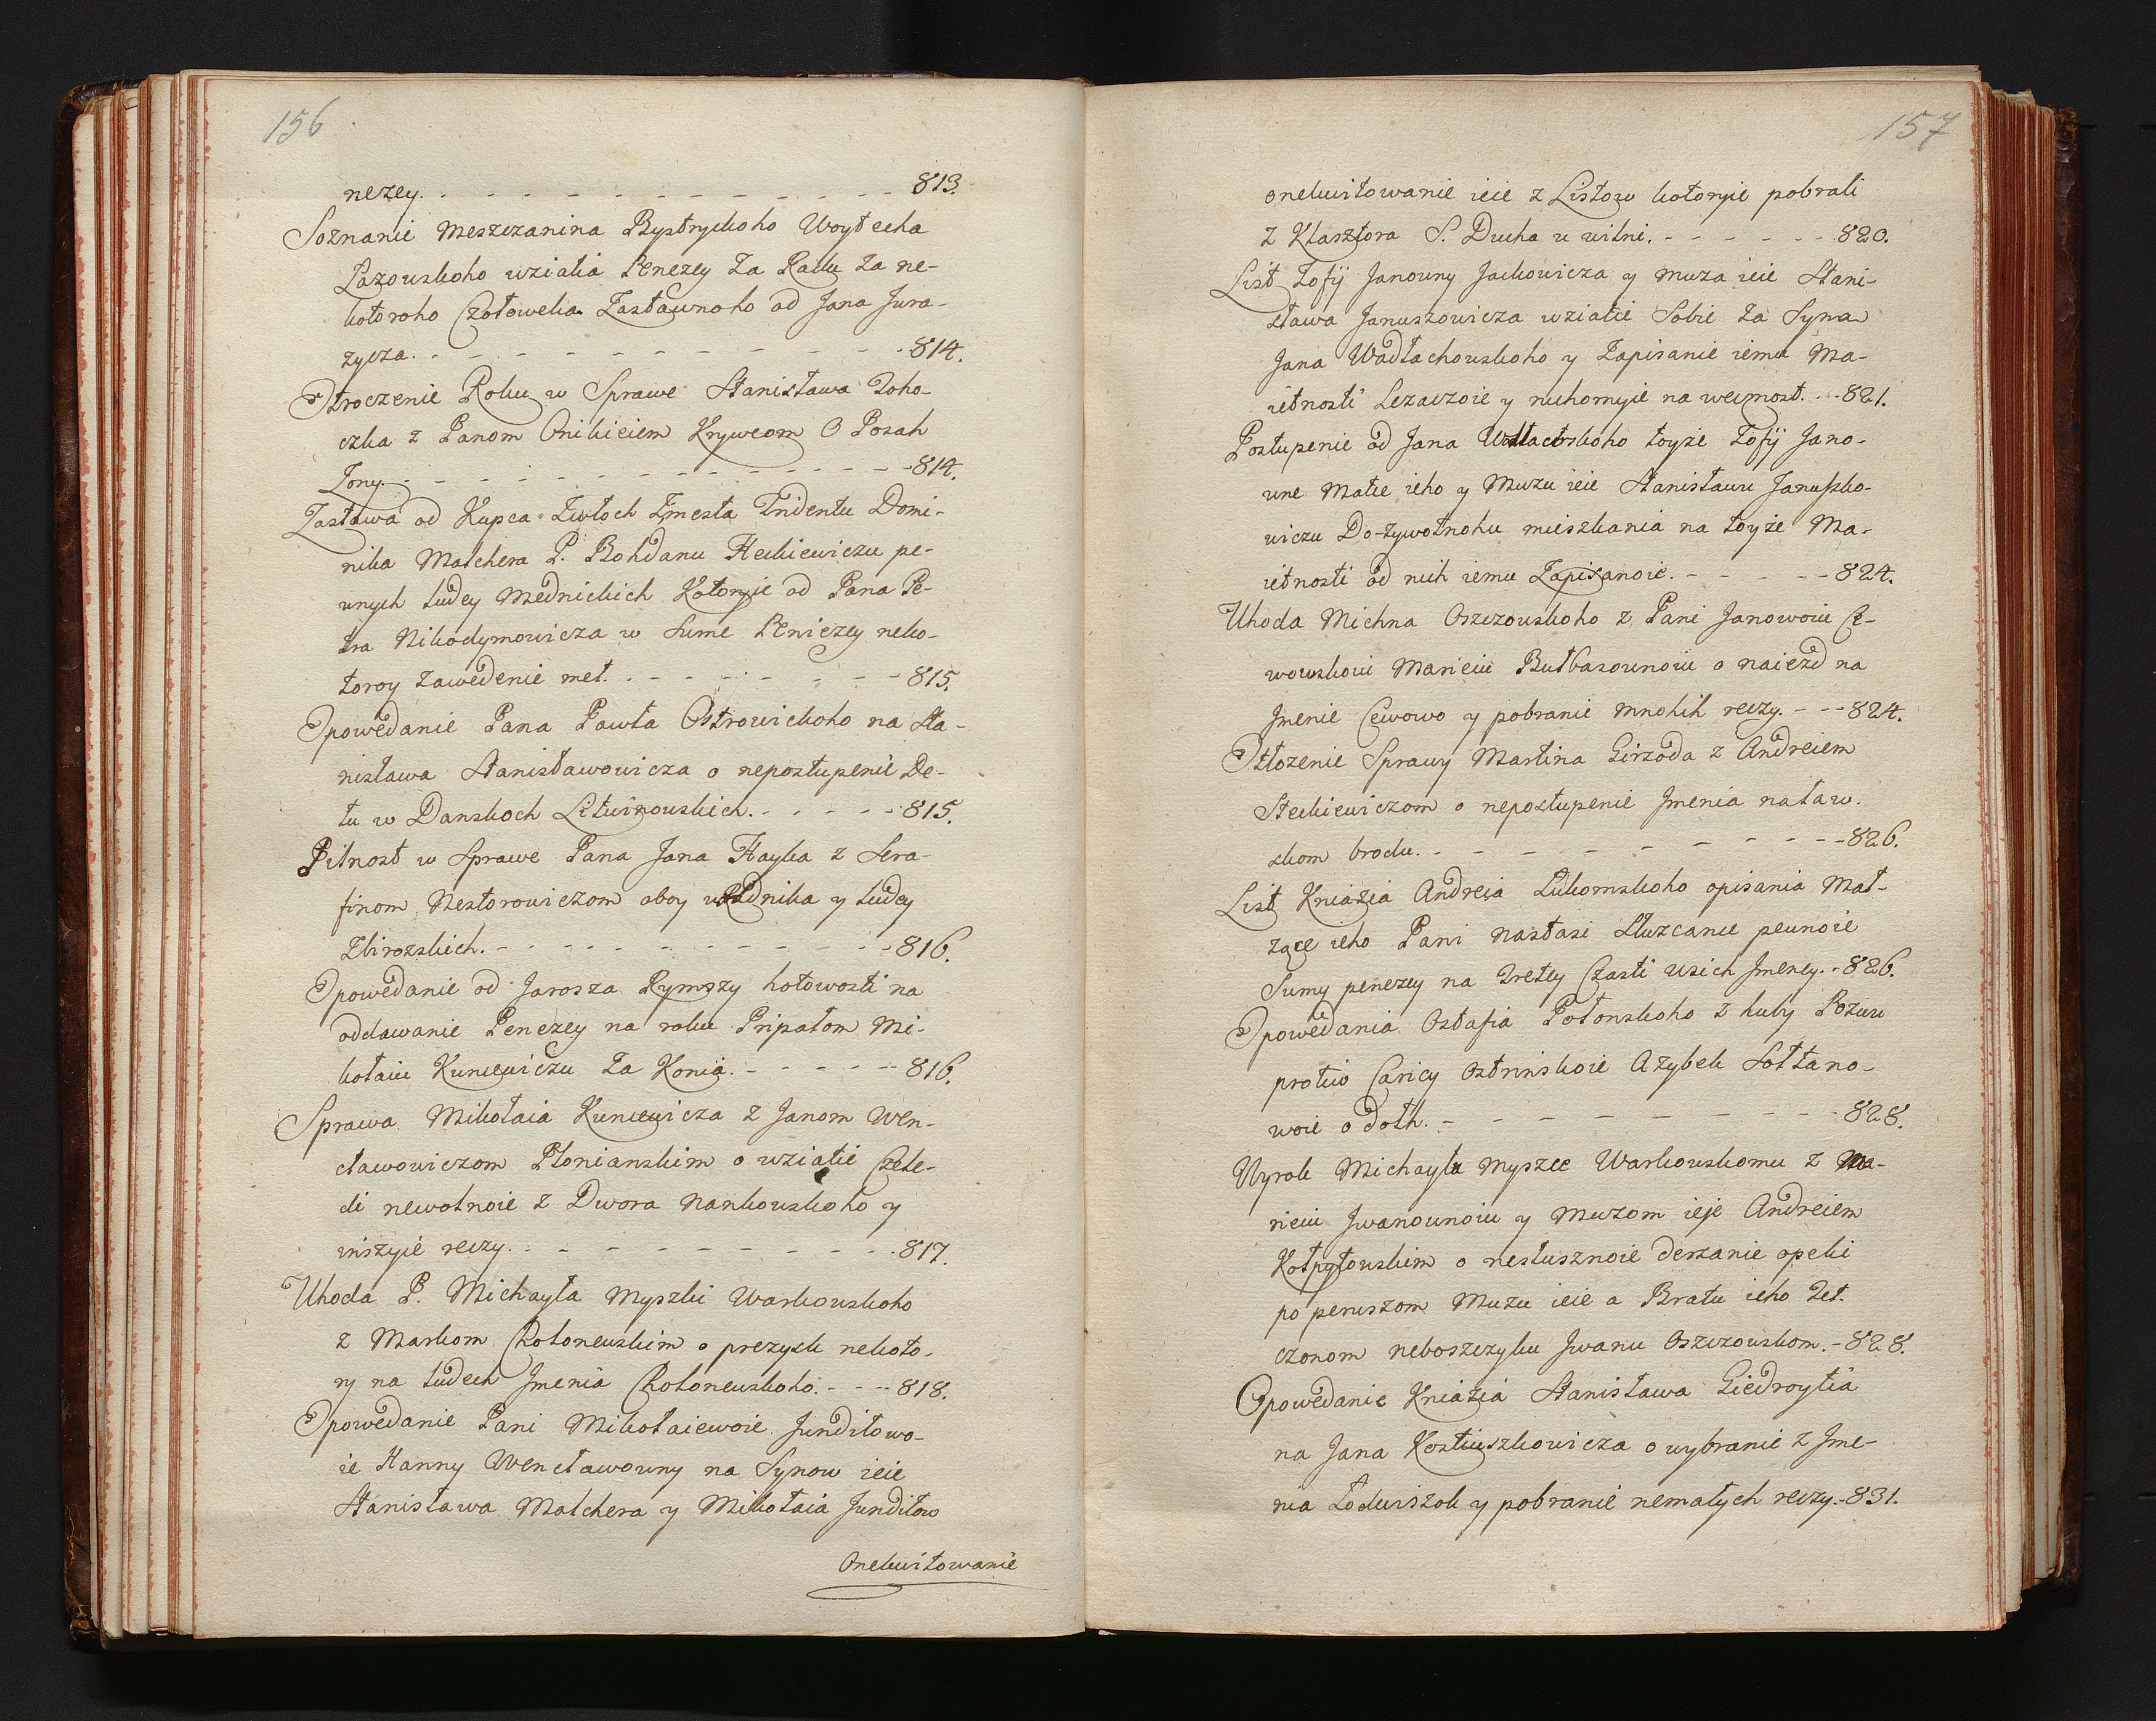 156
nezey. - - - - - - - - - - 813.
Soznanie Meszczanina Bystryckoho Woytecha
Lazowskoho wziatia Penezey Za Radu Za ne-
kotoroho Czołoweka Zastawnoho od Jana Jura-
zycza. - - - - - - - - - - 814.
Otroczenie Roku w Sprawe Stanisława Doho-
czka z Panom Onikieiem Krywcom O Posah
Zony. - - - - - - - - - - 814.
Zastawa od Kupca Zwłoch Zmesta Tridentu Domi-
nika Malchera P. Bohdanu Heckiewiczu pe-
wnych ludey Mednickich Kotoryie od Pana Pe-
tra Nikodymowicza w Sume Peniezey neko-
toroy zawedenie meł. - - - - - - 815.
Opowedanie Pana Pawła Ostrowickoho na Sta-
nisława Stanisławowicza o nepostupenie De-
łu w Danskoch Litwinowskich. - - - - 815.
Pilnost w Sprawe Pana Jana Hayka z Sera-
finom Nestorowiczom oboy uradnika y ludey
Zbirozskich. - - - - - - - - - 816.
Opowedanie od Jarosza Rymszy hotowosti na
oddawanie Penezey na roku Pripałom Mi-
kołaiu Kuncewiczu Za Konia. - - - - - 816.
Sprawa Mikołaia Kuncewicza z Janom Wen-
cławowiczom Płonianskim o wziatie Czele-
di newolnoie z Dwora Nankowskoho y
inszyie reczy. - - - - - - - - 817.
Uhoda P. Michayła Myszki Warkowskoho
z Markom Chołoneuskim o prezysk nekoto-
ry na ludech Jmenia Chołoneuskoho. - - - 818.
Opowedanie Pani Mikołaiewoie Jundiłowo-
ie Hanny Wencławowny na Synow ieie
Stanisława Malchera y Mikołaia Jundiłow
Onekwitowanie
157
onekwitowanie ieie z Listow kotoryie pobrali
z Klasztora S. Ducha u wilni. - - - - - 820.
List Zofij Janowny Jackowicza y muza ieie Stani-
sława Januszowicza wziatie Sobie Za Syna
Jana Wadłachowskoho y Zapisanie iemu Ma-
ietnosti Lezaczoie y ruhomyie na wecznost. - - 821.
Postupenie od Jana toyze Zofij Jano-
wne Matce ieho y Muzu ieie Stanisławu Januszko-
wiczu Do-zywotnohu mieszkania na toyze Ma-
ietnosti od nich iemu Zapisanoie. - - - - - 824.
Uhoda Michna Oszczowskoho z Pani Janowoiu Ce-
wowskoiu Marieiu Bułbasownoiu o naiezd na
Jmenie Cewowo y pobranie mnohih reczy. - - - 824.
Otłozenie Sprawy Martina Girzoda z Andreiem
Steckiewiczom o nepostupenie Jmenia na Taw-
skom brodu. - - - - - - - - - 826.
List Kniazia Andreia Łukomskoho opisania Mał-
zące ieho Pani nastasi Słuzcance pewnoie
Sumy penezey na Tretey Czasti wsich Jmeney. - 826.
Opowedania Ostafia Połonskoho z huby Pozwu
protiw Caricy Ostrinskoie Azybek Sołtano-
woie o dołh. - - - - - - - - 828.
Wyrok Michayłu Myszce Warkowskomu z Ma-
rieiu Jwanownoiu y Muzom ieje Andreiem
Kołpytowskim o nesłusznoie derzanie opeki
po perwszom Muzu ieie a Bratu ieho Zet-
czonom neboszczyku Jwanu Oszczowskom. - 828.
Opowedanie Kniazia Stanisława Giedroytia
na Jana Kostiuszkowicza o wybranie z Jme-
nia Łodwiszok y pobranie nemałych reczy. - 831.